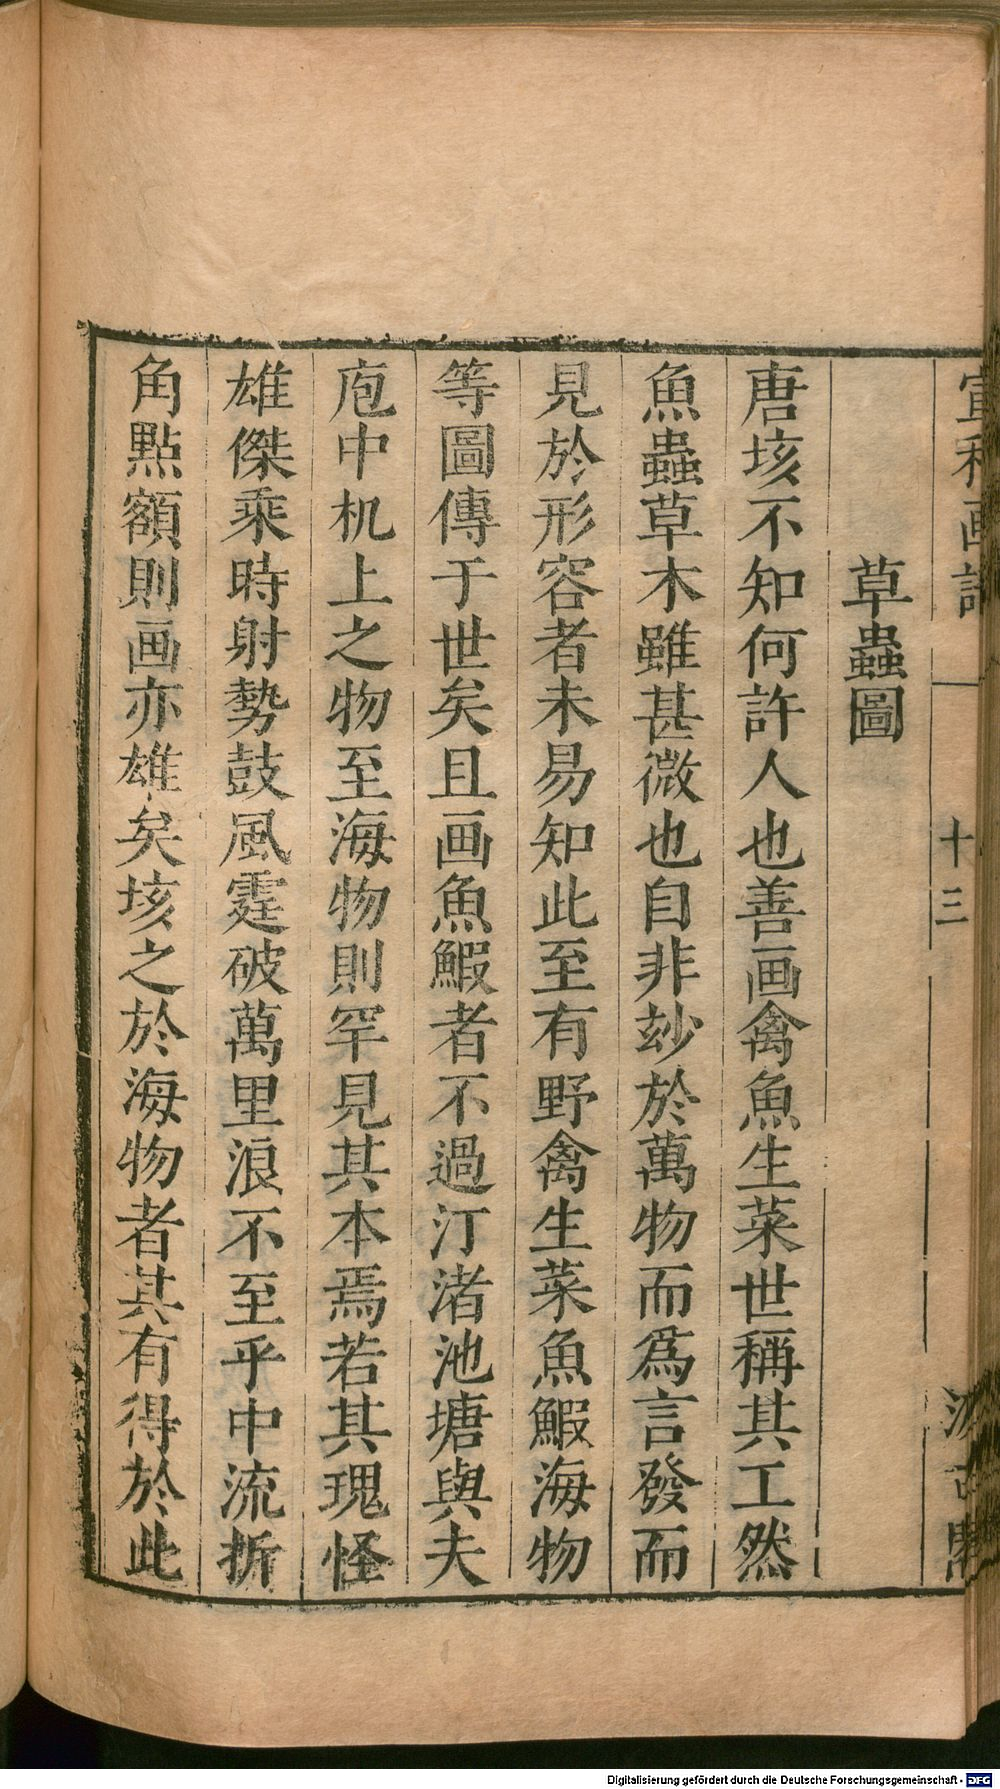 宣和画譜 十三 汲古閣
草蟲圖
唐垓不知何許人也善画禽魚生菜世稱其工然
魚蟲草木雖甚微也自非玅於萬物而爲言發而
見於形容者未易知此至有野禽生菜魚鰕海物
等圖傳于世矣且画魚鰕者不過汀渚池塘與夫
庖中机上之物至海物則罕見其本焉若其瑰怪
雄傑乘時射勢鼓風霆破萬里浪不至乎中流折
角點額則画亦雄矣垓之於海物者其有得於此
Digitalisierung gefördert durch die Deutsche Forschungsgemeinschaft - DFG